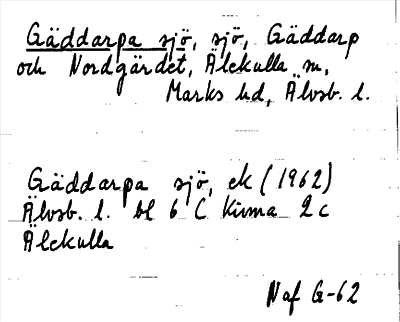 Gäddarpa sjö, sjö, Gäddarp
och Nordgärdet, Älekulla sn,
Marks hd, Älvsb. l.
Gäddarpa sjö, ek (1962)
Älvsb. l. bl 6 C Kinna 2c
Älekulla
Naf G-62